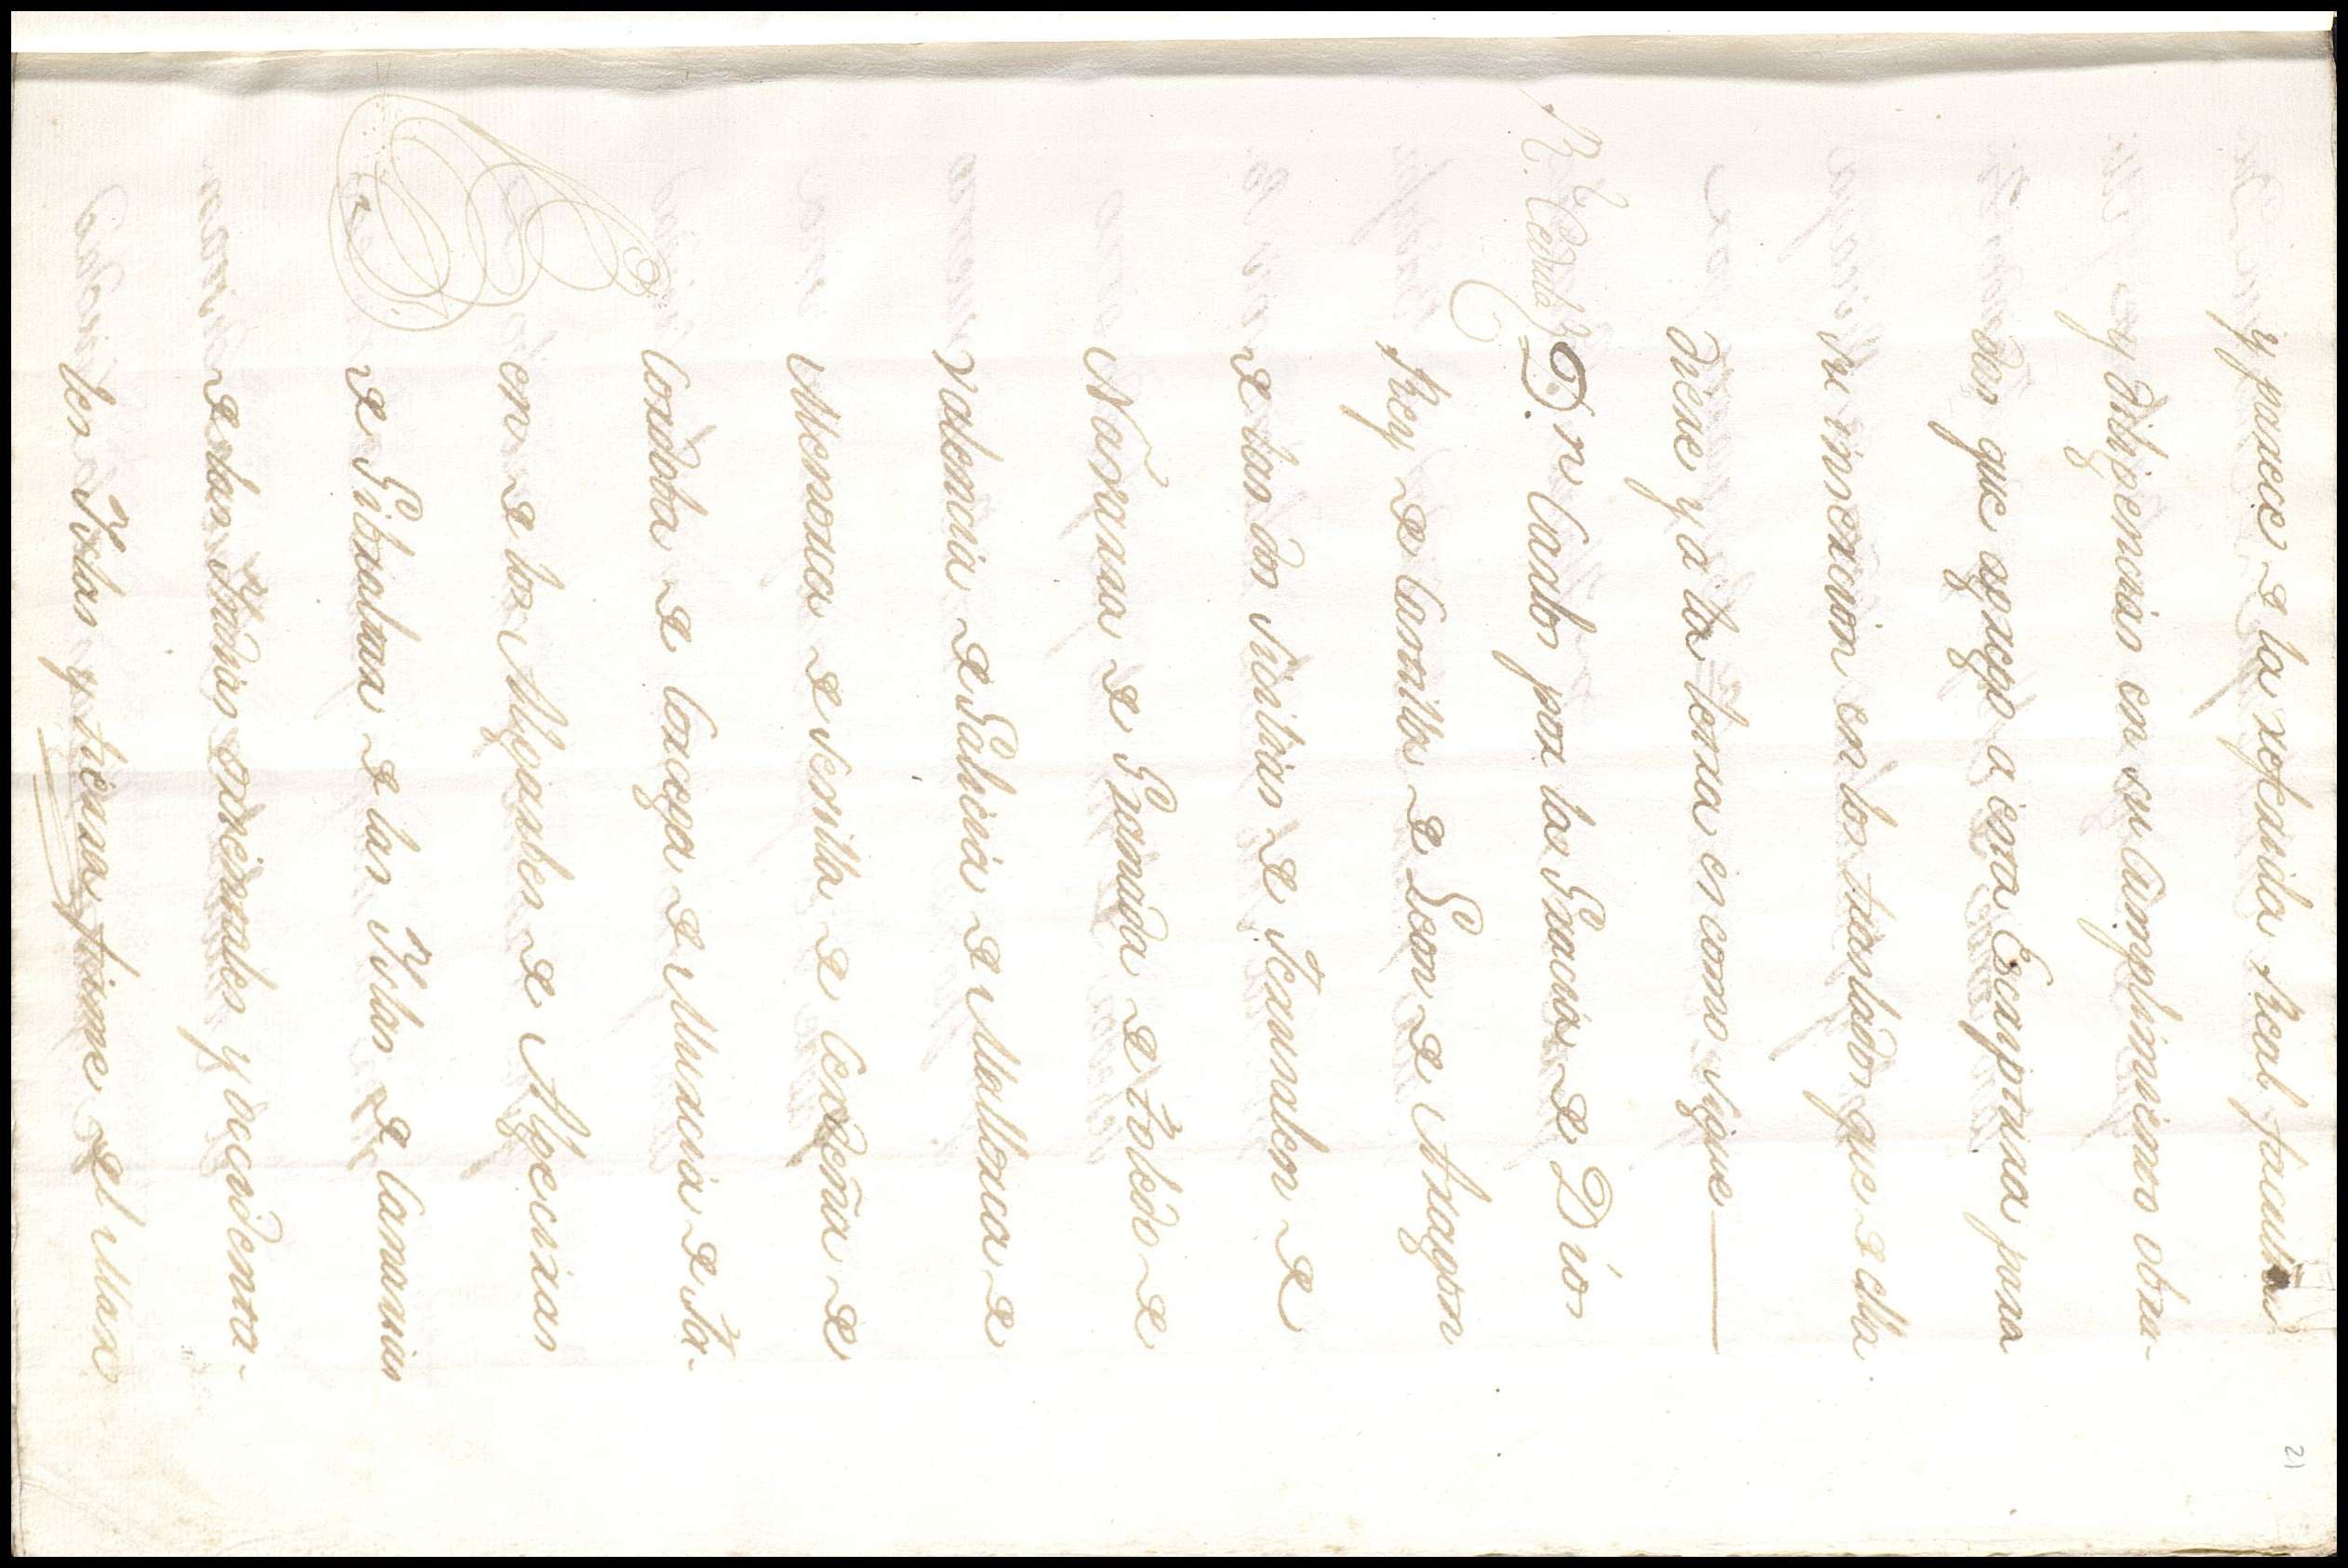 21
y parece de la xefexida Real facultad
y diligencias en su cumplimiento obra-
das que agrego a esta Escriptura para
su insercion en los traslados que de ella
diere y a la letra es como sigue
Rl. Cedula
Dn Carlos por la Gracia de Dios
Rey de Castilla de Leon de Aragon
de las dos Sicilias de Jerusalen de
Navarra de Granada de Toledo de
Valencia de Galicia de Mallorca de
Menorca de Sevilla de Cerdeña de
Cordoba de Corcega de Murcia de Ja-
en de los Algarbes de Algeciras
de Gibraltar de las Yslas de Canarias
de las Yndias orientales y occidenta-
les Yslas y tierra firme del Mar